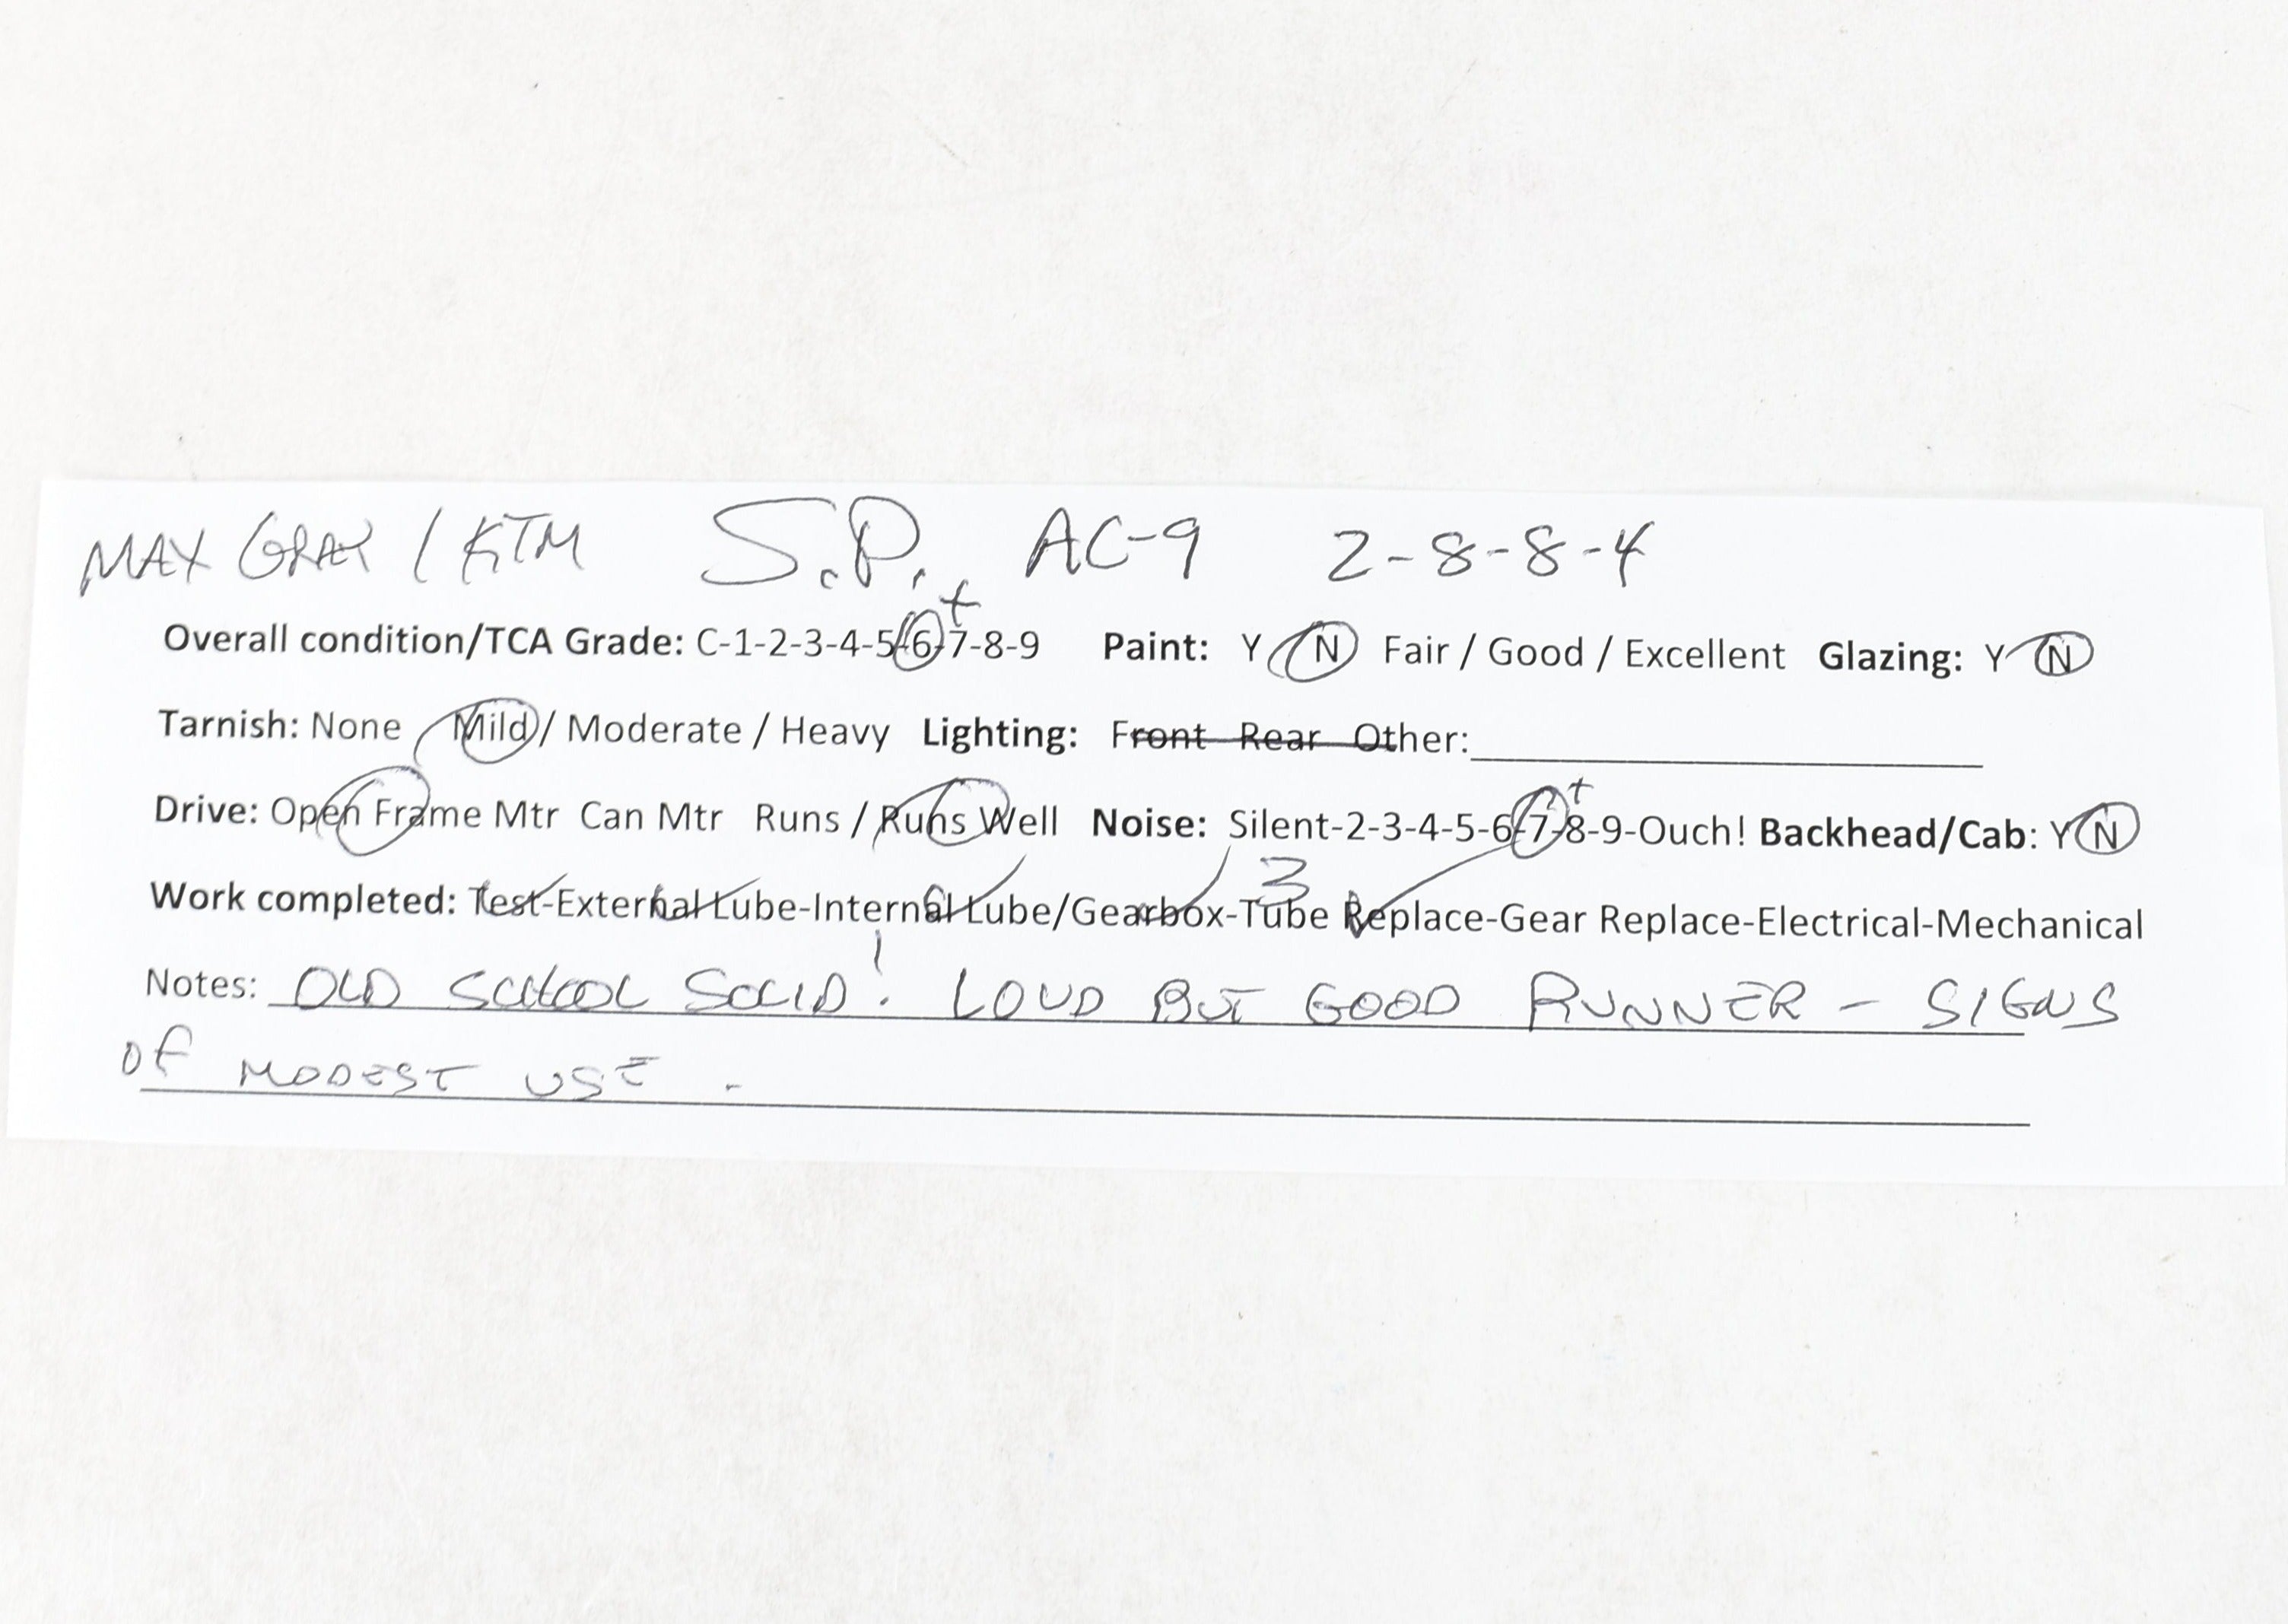 MAX GRAY / KTM S.P. AC-9 2-8-8-4
Overall condition/TCA Grade: C-1-2-3-4-5-6+-7-8-9 Paint: Y / N Fair / Good / Excellent Glazing: Y N
Tarnish: None / Mild / Moderate / Heavy Lighting: Front Rear Other:
Drive: Open Frame Mtr Can Mtr Runs / Runs Well Noise: Silent-2-3-4-5-6-7+-8-9-Ouch! Backhead/Cab: Y N
Work completed: Test-External Lube-Internal Lube/Gearbox-3 Tube Replace-Gear Replace-Electrical-Mechanical
Notes: OLD SCHOOL SOLID! LOUD BUT GOOD RUNNER - SIGNS
OF MODEST USE.